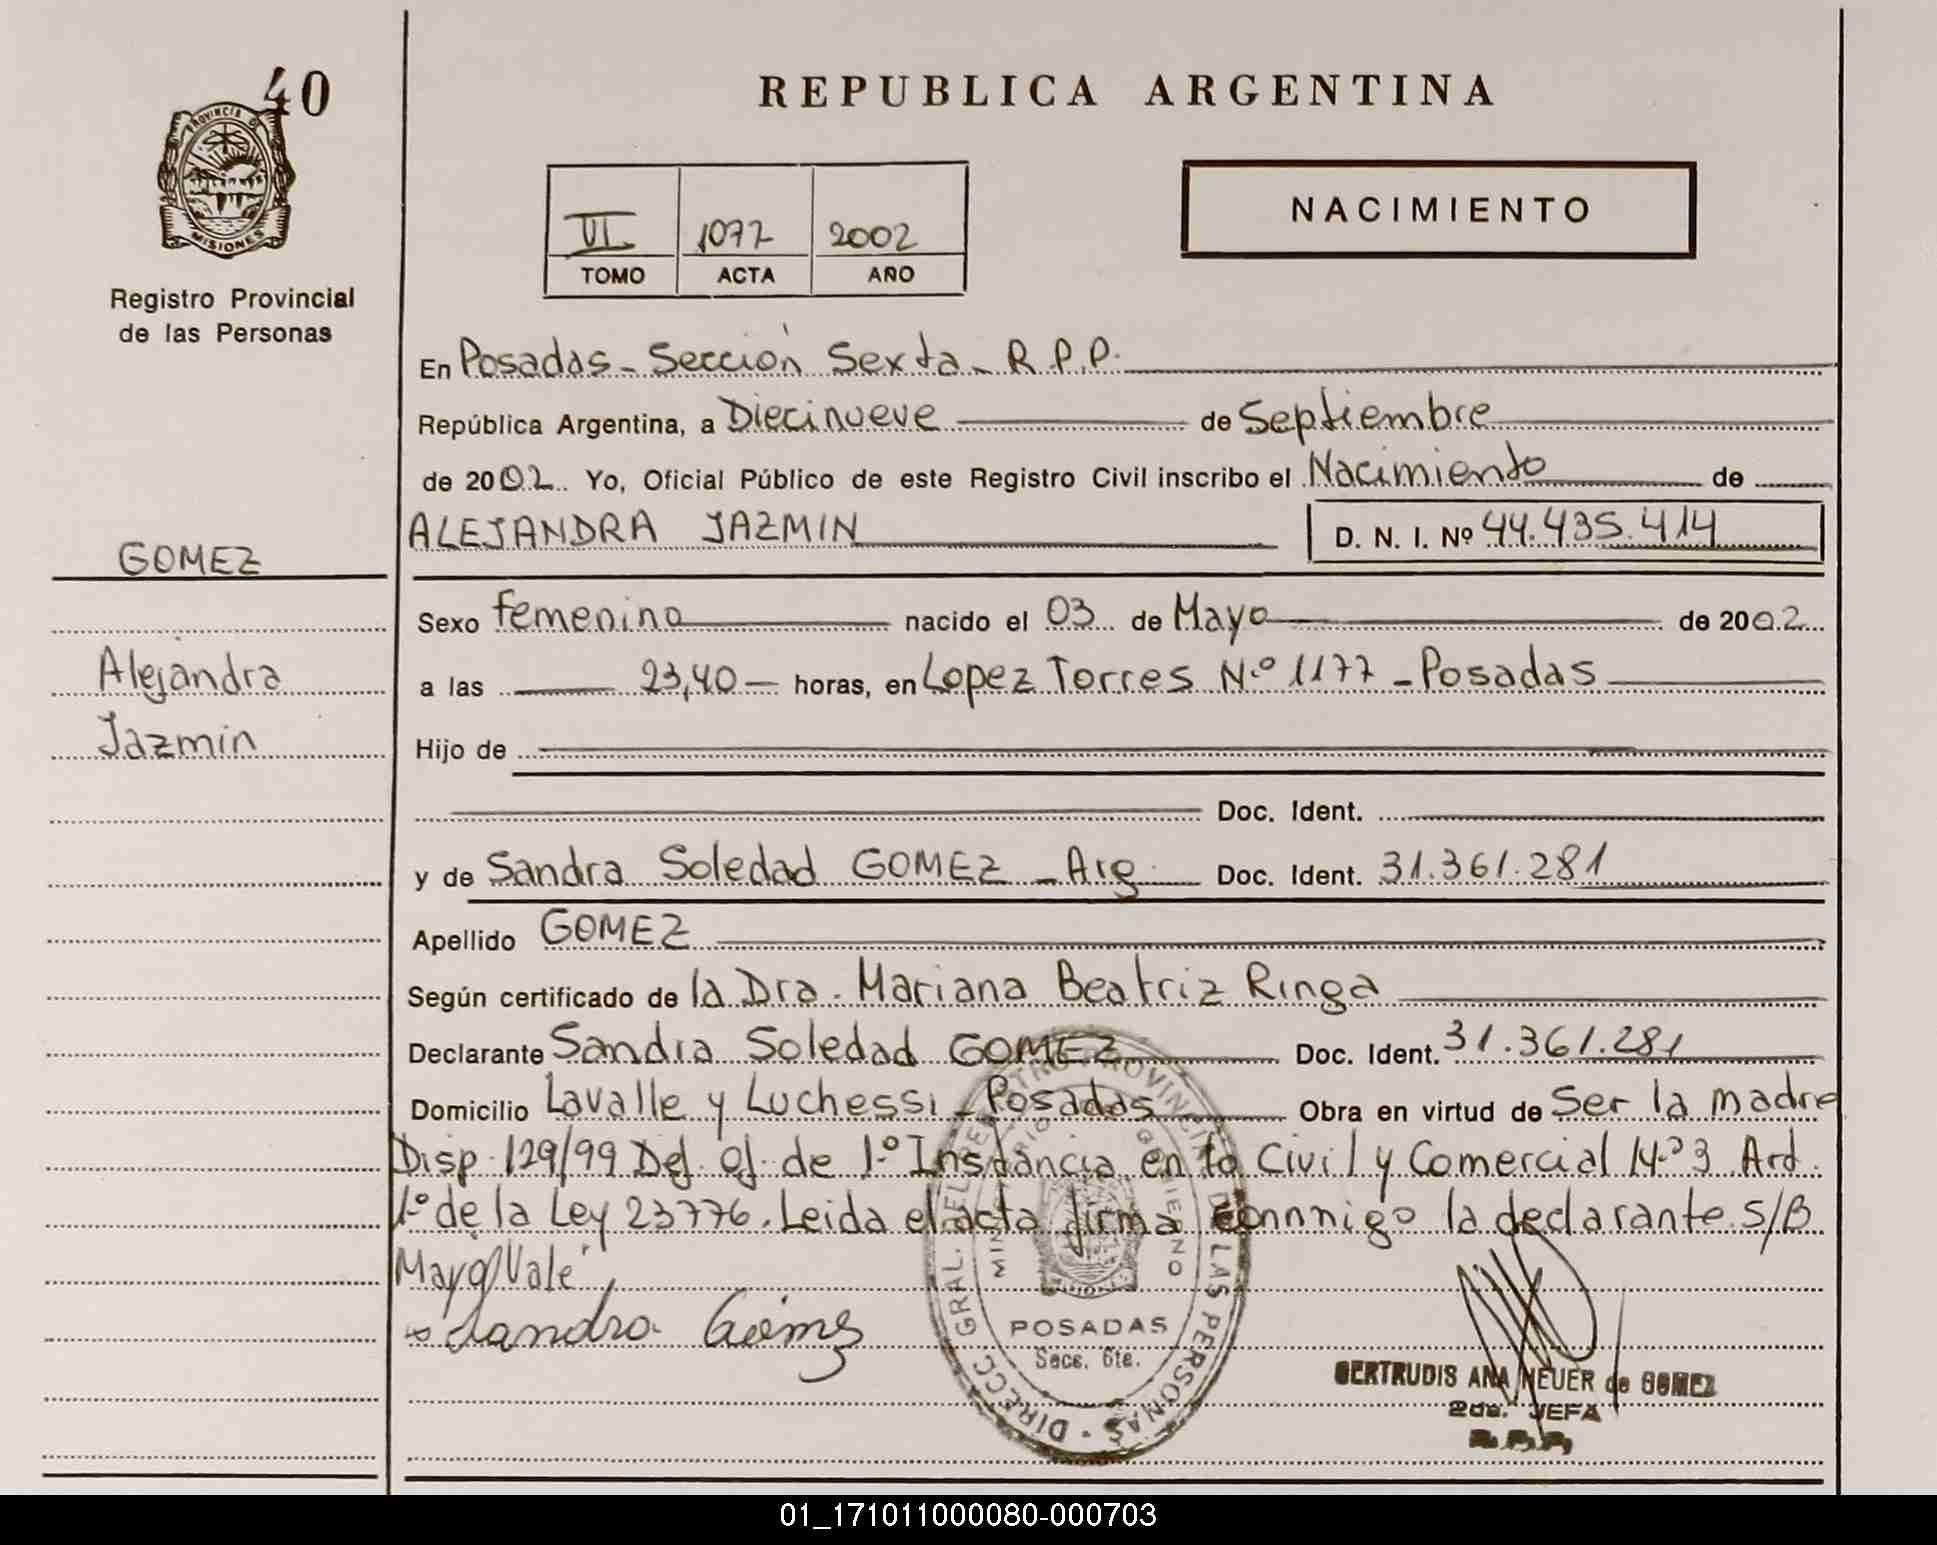 40
PROVINCIA DE
MISIONES
Registro Provincial
de las Personas
REPUBLICA ARGENTINA
VI 1077 2002
TOMO ACTA AÑO
NACIMIENTO
En Posadas - Sección Sexta - R.P.P.
República Argentina, a Diecinueve de Septiembre
de 2002. Yo, Oficial Público de este Registro Civil inscribo el Nacimiento de
ALEJANDRA JAZMIN D. N. I. Nº 44.435.414
GOMEZ
Alejandra
Jazmin
Sexo femenino nacido el 03 de Mayo de 2002
a las 23,40 horas, en Lopez Torres N.º 1177 - Posadas
Hijo de
Doc. Ident.
y de Sandra Soledad GOMEZ - Arg. Doc. Ident. 31.361.281
Apellido GOMEZ
Según certificado de la Dra. Mariana Beatriz Ringa
Declarante Sandra Soledad GOMEZ Doc. Ident. 31.361.281
Domicilio Lavalle y Luchessi - Posadas Obra en virtud de Ser la madre
Disp. 129/99 Def. of. de 1.º Instancia en lo Civil y Comercial Nº 3 Art.
1º de la Ley 23776. Leida el acta firma connnigo la declarante. S/B
Mayo Vale
Sandra Gómez
DIRECC. GRAL. DEL REGISTRO PROVINCIAL DE LAS PERSONAS
MINISTERIO GOBIERNO
POSADAS
Secc. 6ta.
GERTRUDIS ANA NEUER de GOMEZ
2da. JEFA
R.P.P.
01_171011000080-000703